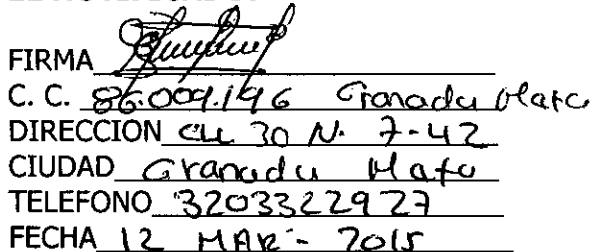 FIRMA
C. C. 86.009.196 Granada Meta
DIRECCION CLL 30 N. 7-42
CIUDAD Granada Meta
TELEFONO 3203322927
FECHA 12 MAR - 2015